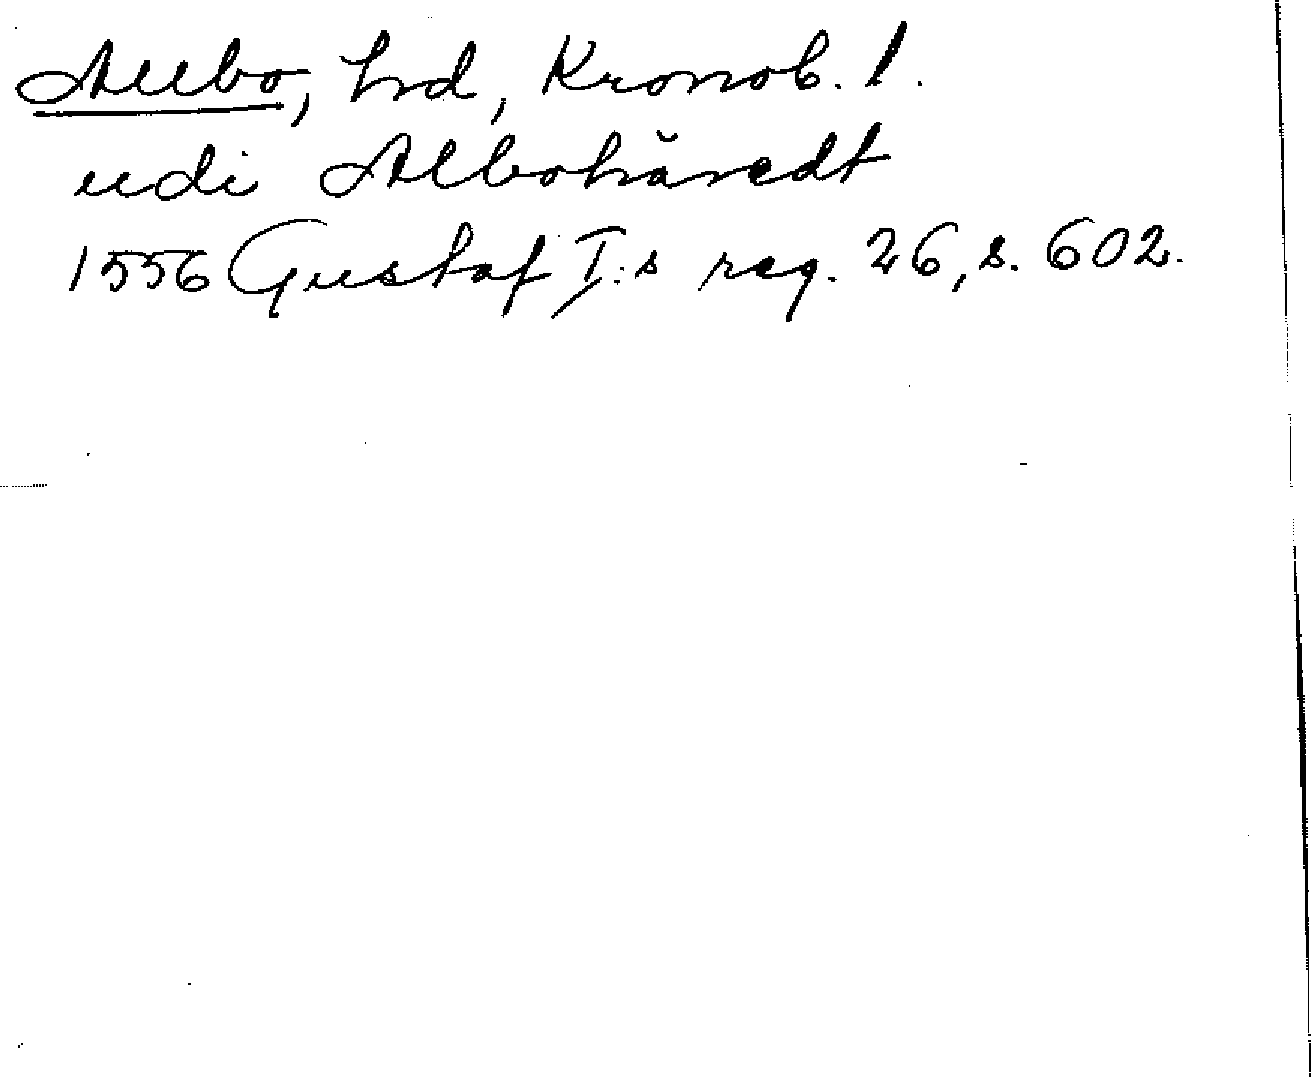 Allbo, hd, Kronob. l.
udi Albohäredt
1556 Gustaf I:s reg. 26, s. 602.